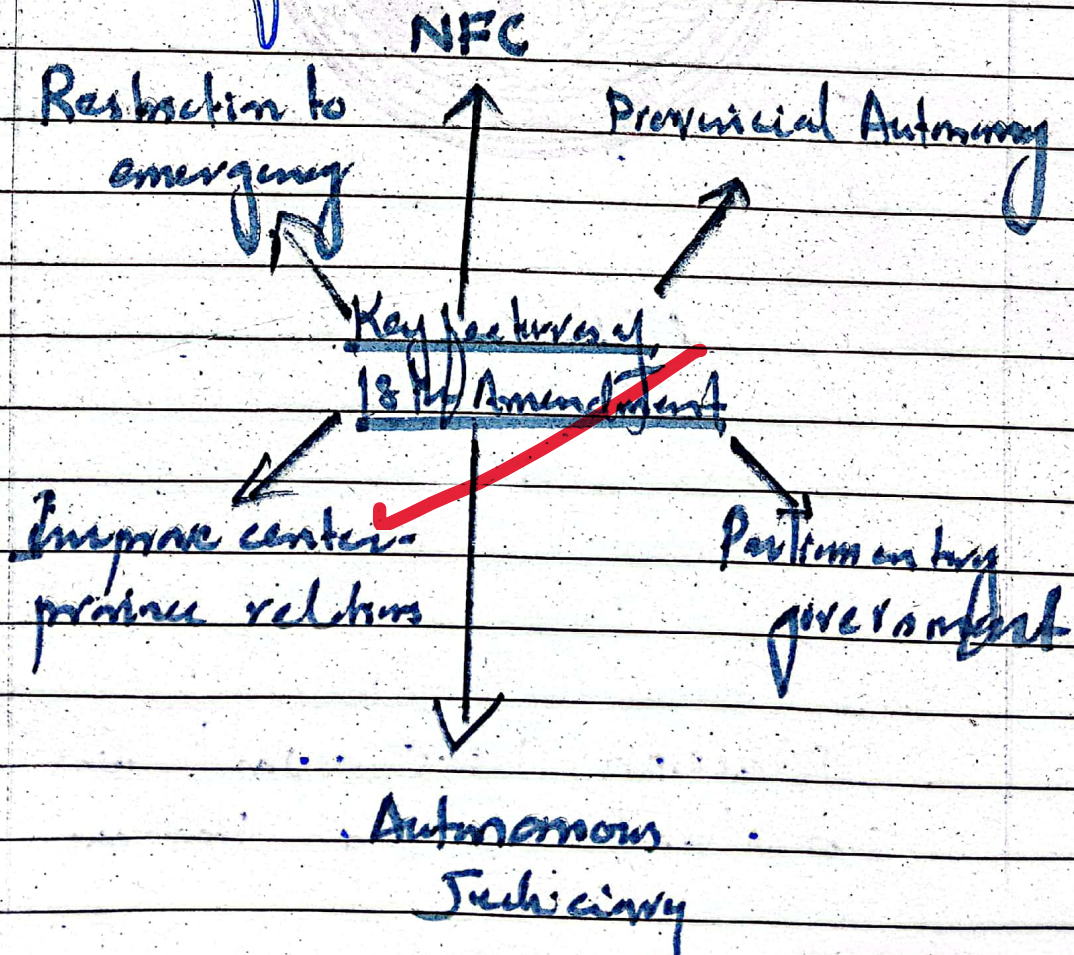 NFC
Restriction to
emergency
Provincial Autonomy
Key features of
18th Amendment
Improve center-
province relations
Parliamentary
government
Autonomous
Judiciary